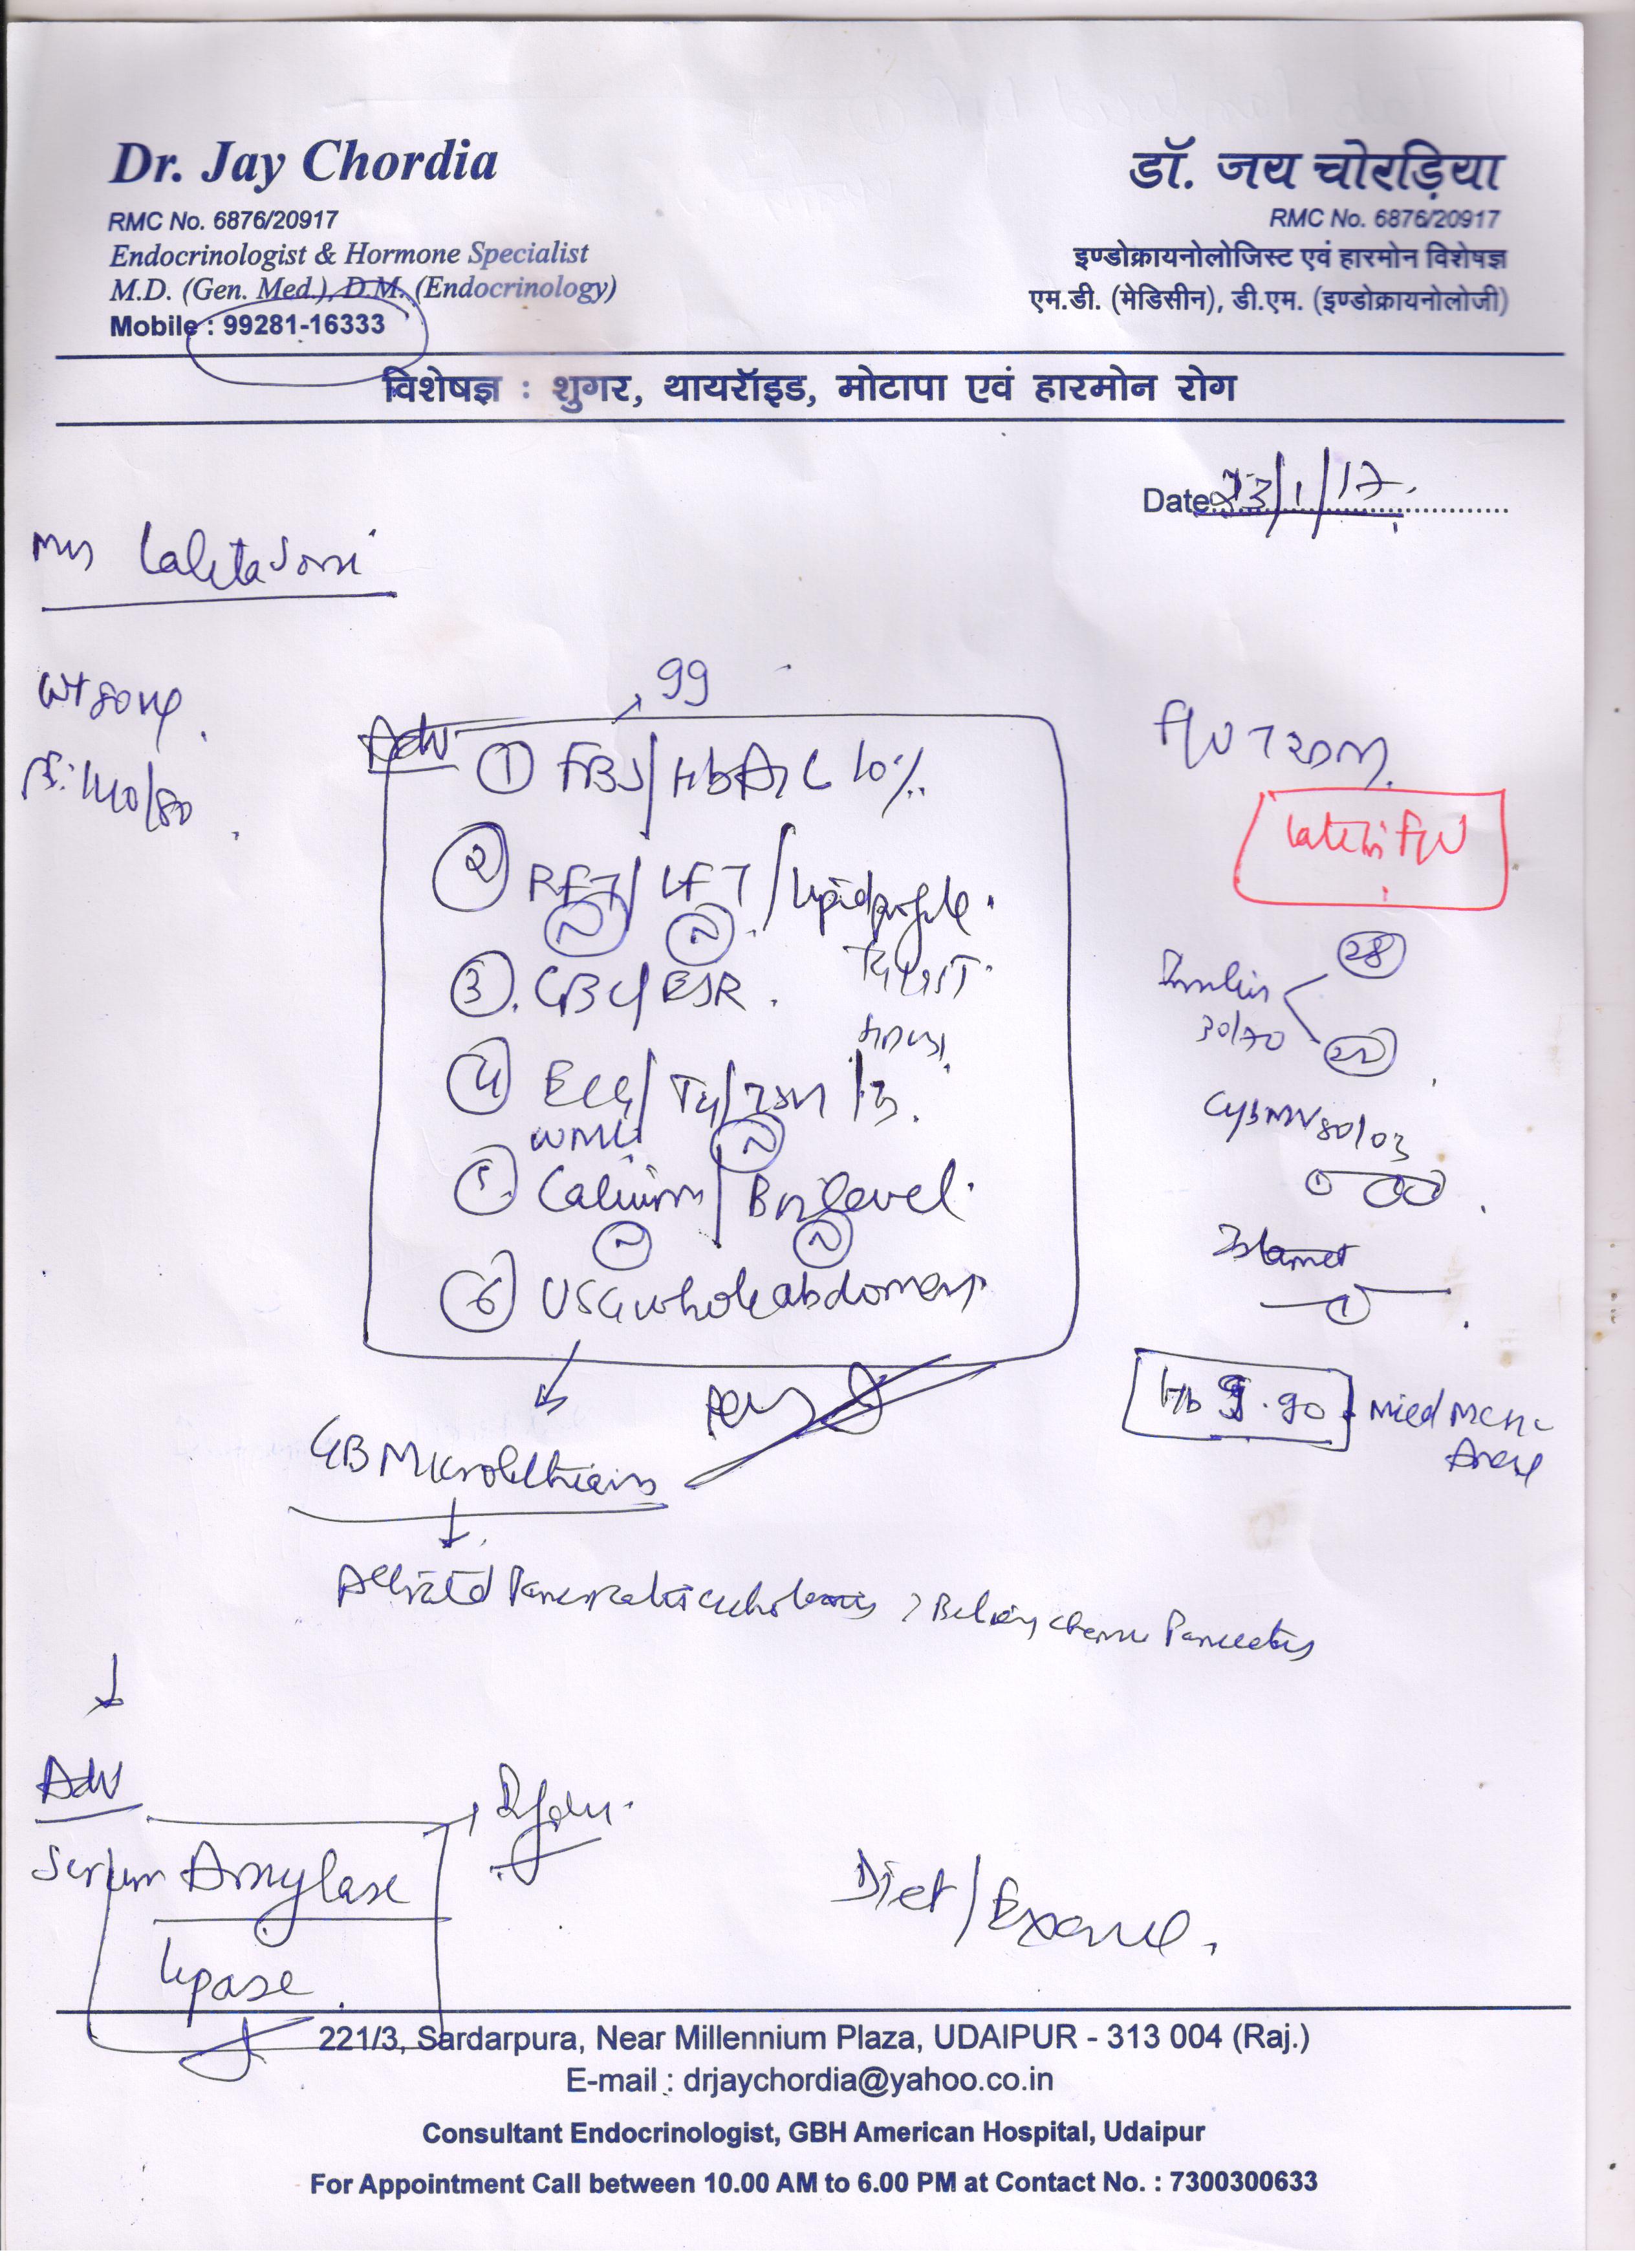 Dr. Jay Chordia
RMC No. 6876/20917
Endocrinologist & Hormone Specialist
M.D. (Gen. Med.), D.M. (Endocrinology)
Mobile : 99281-16333
डॉ. जय चोरड़िया
RMC No. 6876/20917
इण्डोक्रायनोलोजिस्ट एवं हारमोन विशेषज्ञ
एम.डी. (मेडिसीन), डी.एम. (इण्डोक्रायनोलोजी)
विशेषज्ञ : शुगर, थायरॉइड, मोटापा एवं हारमोन रोग
Date 23/1/17.
Mrs Lalita Soni
Wt 80 kg.
140/80
99
Adv
① FBS/HbA1C 10%.
② RFT/LFT/Lipid profile.
N N
③. CBC/ESR.
④ ECG/T4/TSH/T3.
WNL N
⑤. Calcium/B12 level.
N N
⑥ USG whole abdomen
GB Microlithiasis
Pancreatitis
Adv
Serum Amylase
Lipase
F/U T2DM.
Late in F/U
Insulin 28
30/70 22
Istamet
①
Hb 9.90 Mild
Diet/Exercise.
221/3, Sardarpura, Near Millennium Plaza, UDAIPUR - 313 004 (Raj.)
E-mail : drjaychordia@yahoo.co.in
Consultant Endocrinologist, GBH American Hospital, Udaipur
For Appointment Call between 10.00 AM to 6.00 PM at Contact No. : 7300300633